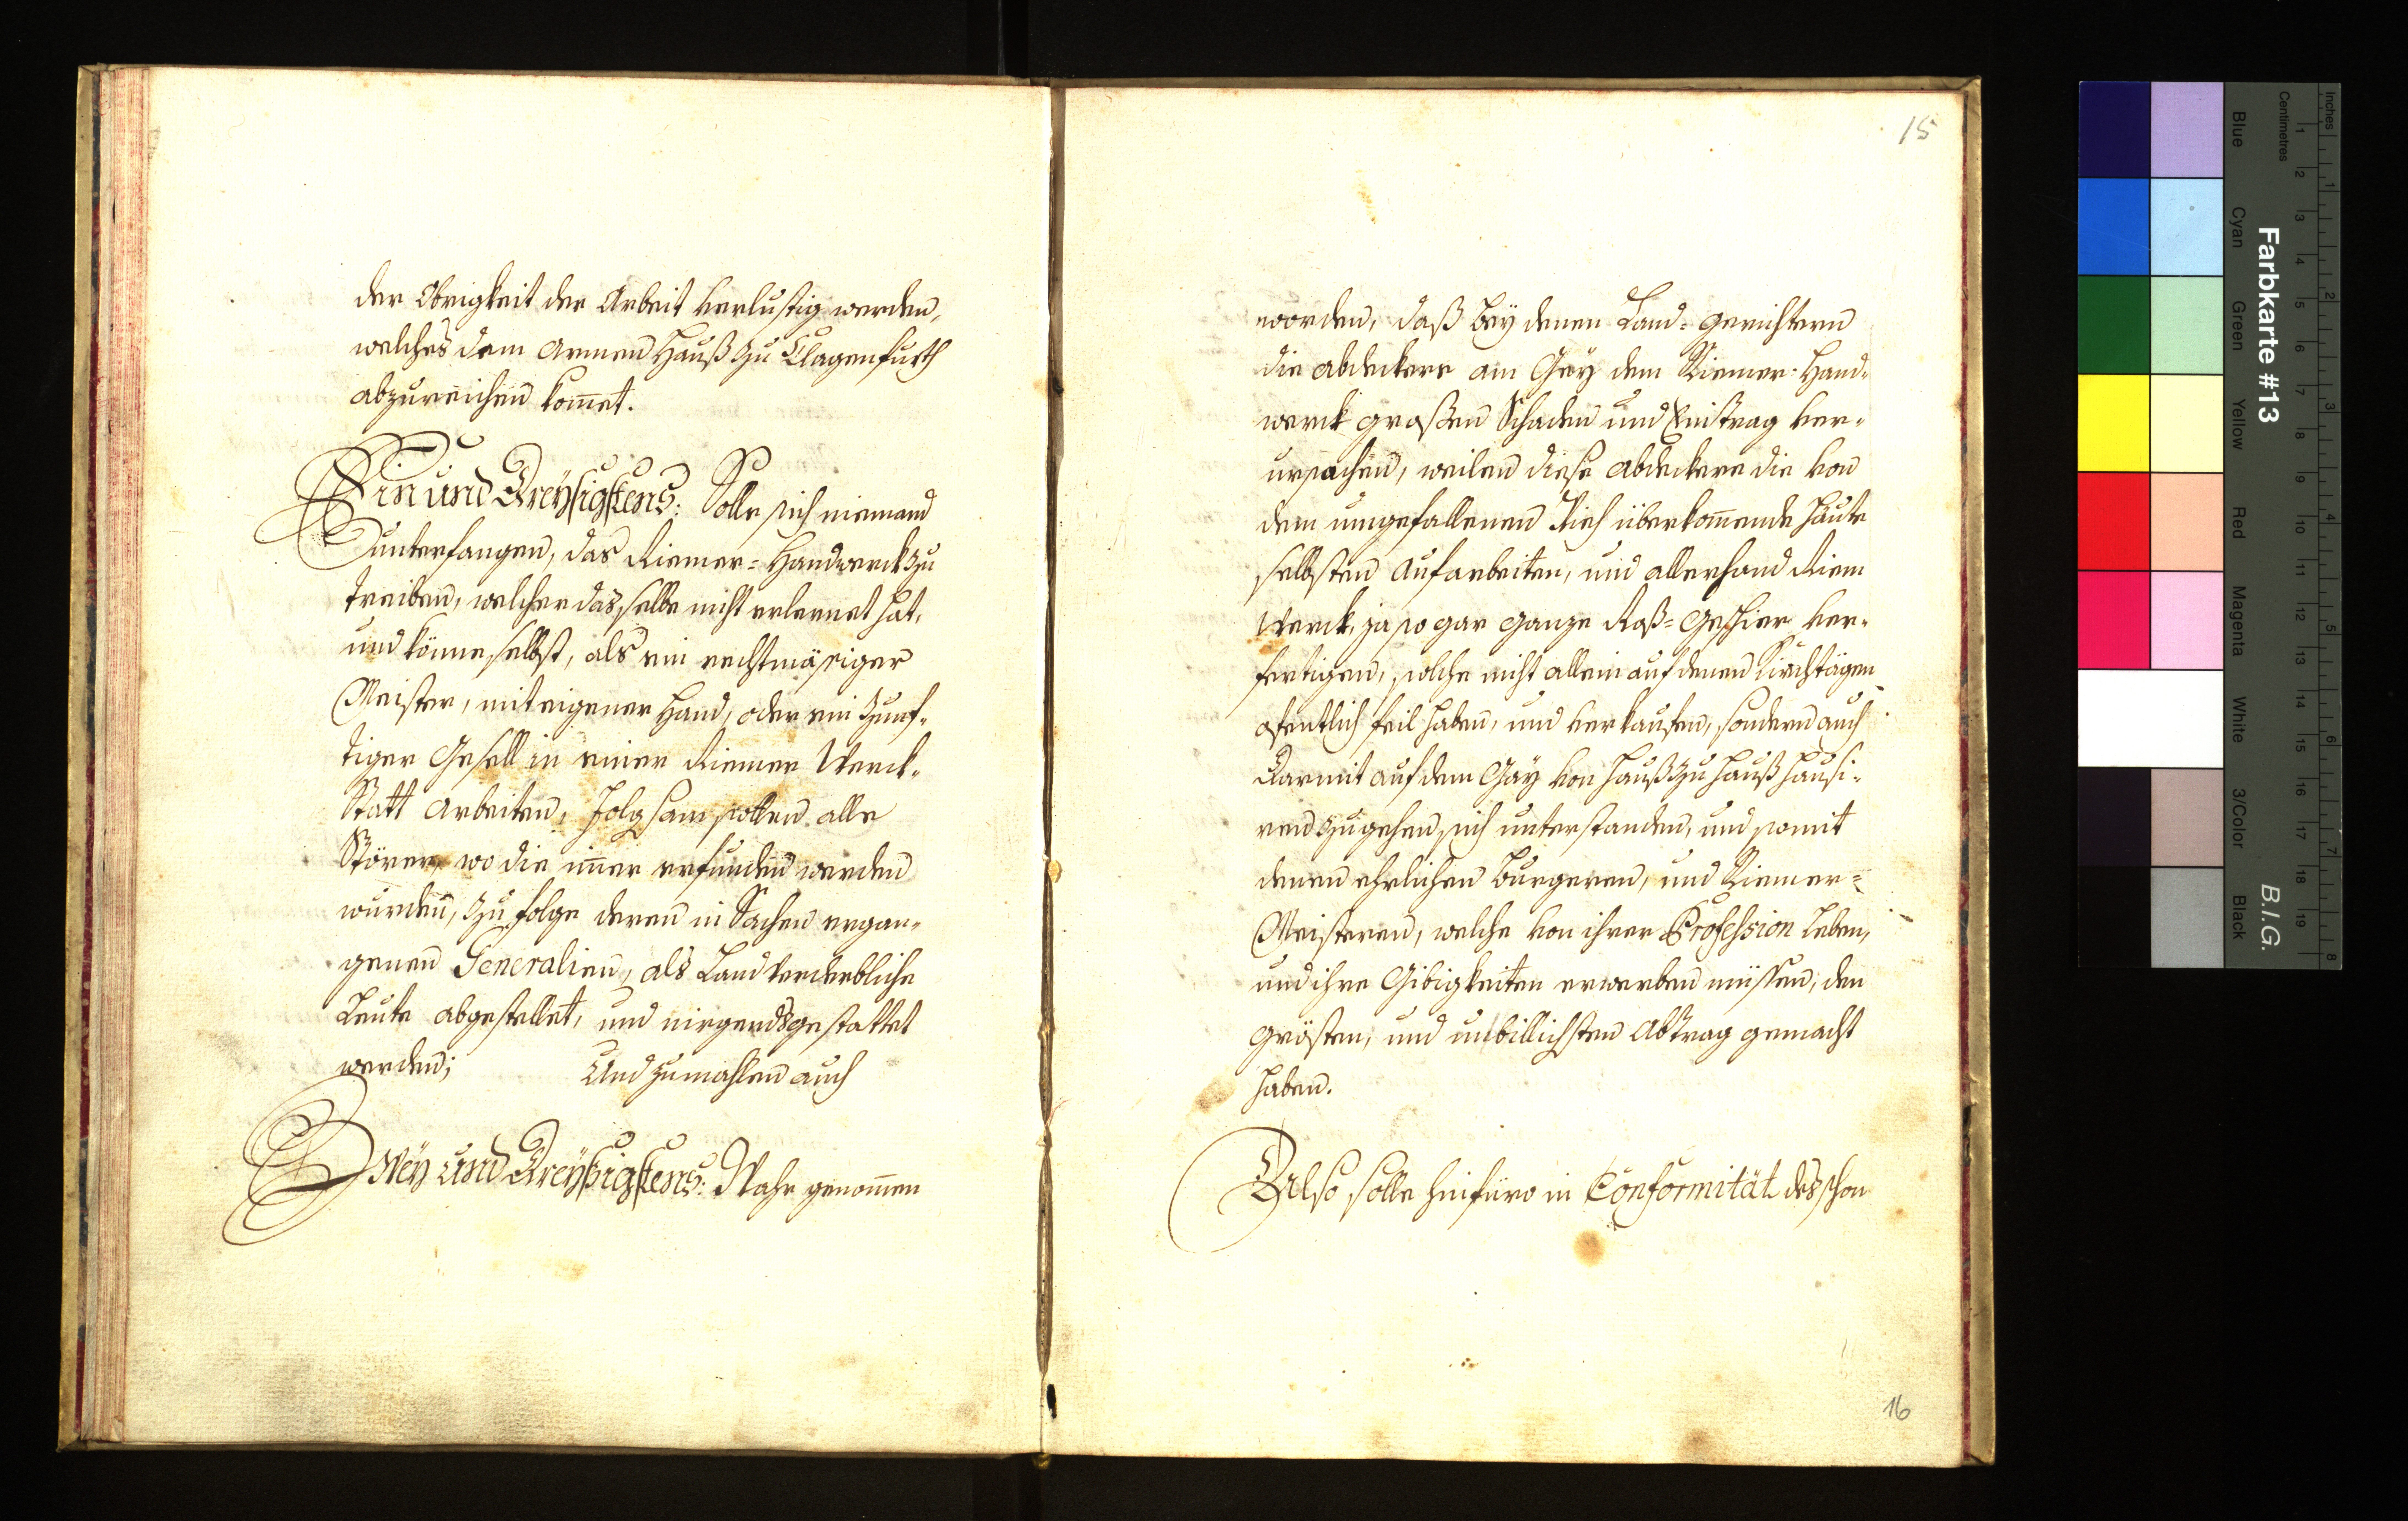 der Obrigkeit der Arbeit verlustig werden,
welches dem armen Hauß zu Clagenfurth
abzureichen kom̄et.
Ein und Dreÿsigstens: Solle sich niemand
unterfangen, das Riemer=Handwerck zu
treiben, welcher dasselbe nicht erlernet hat,
und könne selbst, als ein rechtmäsiger
Meister, mit eigener Hand, oder ein Zunf-
tiger Gesell in einer Riemer Werck-
Statt arbeiten, folgsam sollen alle
Störer, wo die im̄er erfunden werden
wurden, zu folge deren in Sachen ergan-
genen Generalien, als Land verderbliche
Leute abgestellet, und nirgends gestattet
werden; Und zumahlen auch
Zweÿ und Dreÿßigstens: Wahr genom̄en
15
worden, daß beÿ denen Land=Gerichtern
die abdeckere am Geÿ dem Riemer=Hand-
werck großen Schaden und Eintrag ver-
ursachen, weilen diese abdeckere die von
dem umgefallenen Vieh überkom̄ende Häute
selbsten aufarbeiten, und allerhand Riem
Werck, ja so gar ganze Roß=Geschier ver-
fertigen, solche nicht allein auf denen Kirchtägen
ofentlich feil haben, und verkaufen, sondern auch
Darmit auf dem Gäÿ von Hauß zu Hauß hausi-
ren zugehen sich unterstanden, und somit
denen ehrlichen Burgeren, und Riemer=
Meisteren, welche von ihrer Profession leben,
und ihre Gibigkeiten erwerben müssen, den
grösten, und unbillichsten Abtrag gemacht
haben.
Also solle hinfüro in Conformität des schon
16
Farbkarte #13
B.I.G.
Inches
Centimetres
Blue
Cyan
Green
Yellow
Red
Magenta
White
3/Color
Black
1 2 3 4 5 6 7 8 9 10 11 12 13 14 15 16 17 18 19
1 2 3 4 5 6 7 8